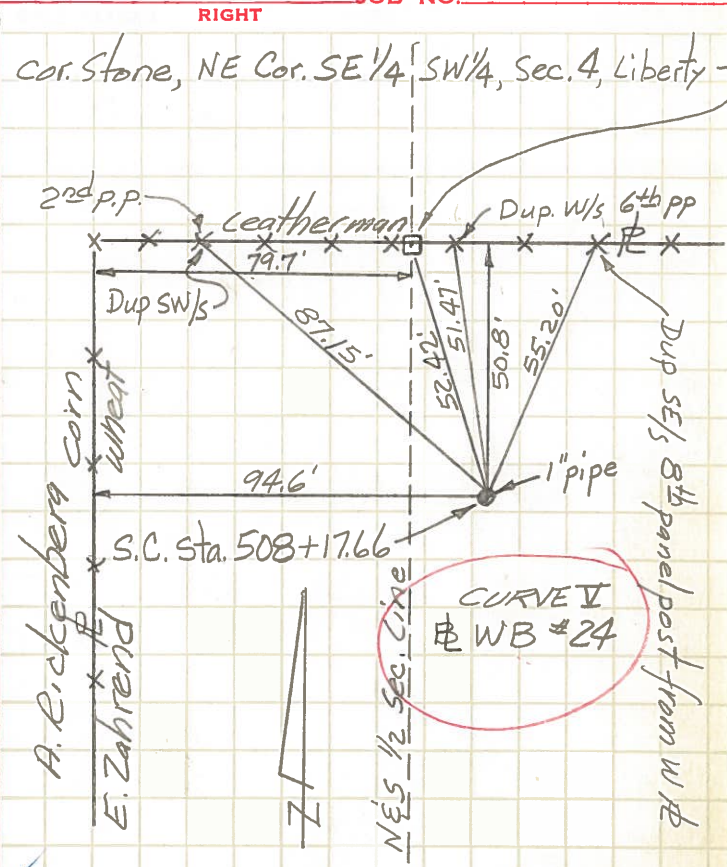 JOB NO.
RIGHT
Cor. Stone, NE Cor. SE 1/4 SW 1/4, Sec. 4, Liberty
2nd P.P.
Leatherman
Dup. W/s
6th PP
℄
79.7'
Dup SW/s
87.15'
52.42'
51.47'
50.8'
55.20'
Dup SE/s 8th panel post from W ℄
corn
wheat
94.6'
1" pipe
S.C. Sta. 508+17.66
A. Rickenberg
℄
E. Zahrend
N
N&S 1/2 Sec. Line
CURVE V
℄ WB #24